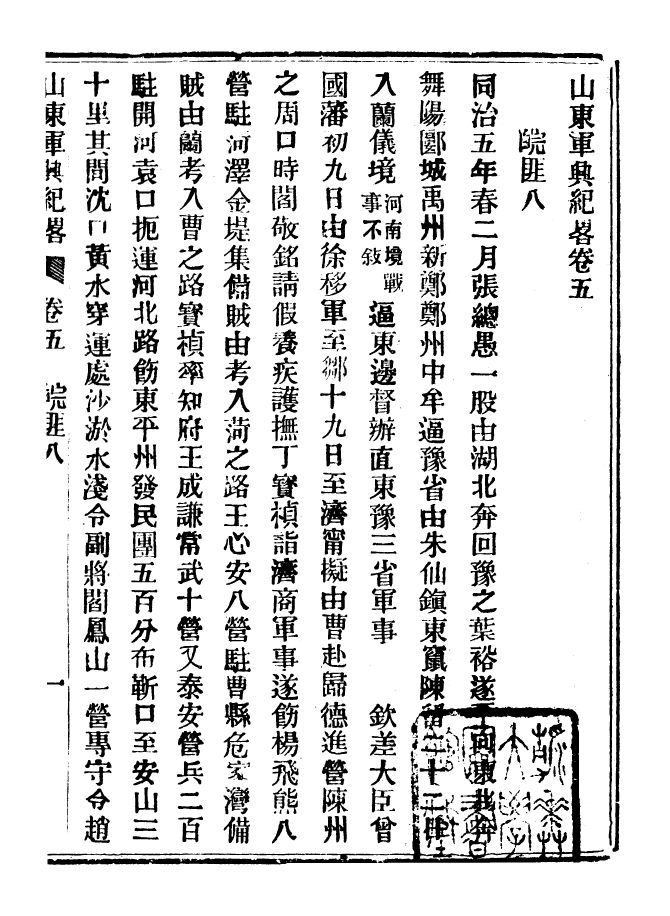 山東軍興紀畧卷五
皖匪八
同治五年春二月張總愚一股由湖北奔回豫之葉裕遂
舞陽郾城禹州新鄭鄭州中牟逼豫省由朱仙鎮東竄陳
入蘭儀境河南境戰事不敍逼東邊督辦直東豫三省軍事 欽差大臣曾
國藩初九日由徐移軍至鄒十九日至濟甯擬由曹赴歸德進營陳州
之周口時閻敬銘請假養疾護撫丁寶楨詣濟商軍事遂飭楊飛熊八
營駐河澤金堤集備賊由考入菏之路王心安八營駐曹縣危家灣備
賊由蘭考入曹之路寶楨率知府王成謙常武十營又泰安營兵二百
駐開河袁口扼運河北路飭東平州發民團五百分布靳口至安山三
十里其間沈口黃水穿運處沙淤水淺令副將閻鳳山一營專守令趙
山東軍興紀畧 卷五 皖匪八 一